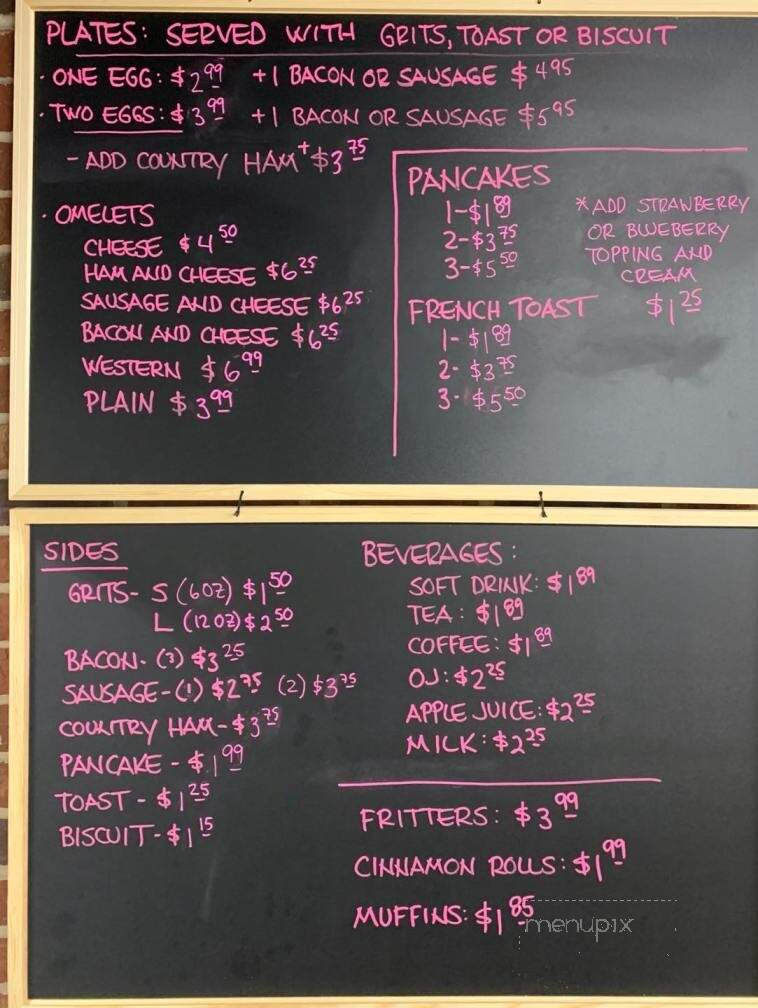 PLATES: SERVED WITH GRITS, TOAST OR BISCUIT
· ONE EGG: $2.99 +1 BACON OR SAUSAGE $4.95
· TWO EGGS: $3.99 +1 BACON OR SAUSAGE $5.95
- ADD COUNTRY HAM + $3.75
· OMELETS
CHEESE $4.50
HAM AND CHEESE $6.25
SAUSAGE AND CHEESE $6.25
BACON AND CHEESE $6.25
WESTERN $6.99
PLAIN $3.99
PANCAKES
1-$1.89
2-$3.75
3-$5.50
*ADD STRAWBERRY
OR BLUEBERRY
TOPPING AND
CREAM
$1.25
FRENCH TOAST
1- $1.89
2- $3.75
3- $5.50
SIDES
GRITS- S (6OZ) $1.50
L (12OZ) $2.50
BACON- (3) $3.25
SAUSAGE-(1) $2.75 (2) $3.75
COUNTRY HAM-$3.75
PANCAKE - $1.99
TOAST - $1.25
BISCUIT-$1.15
BEVERAGES:
SOFT DRINK: $1.89
TEA: $1.89
COFFEE: $1.89
OJ: $2.25
APPLE JUICE: $2.25
MILK: $2.25
FRITTERS: $3.99
CINNAMON ROLLS: $1.99
MUFFINS: $1.85
menupix